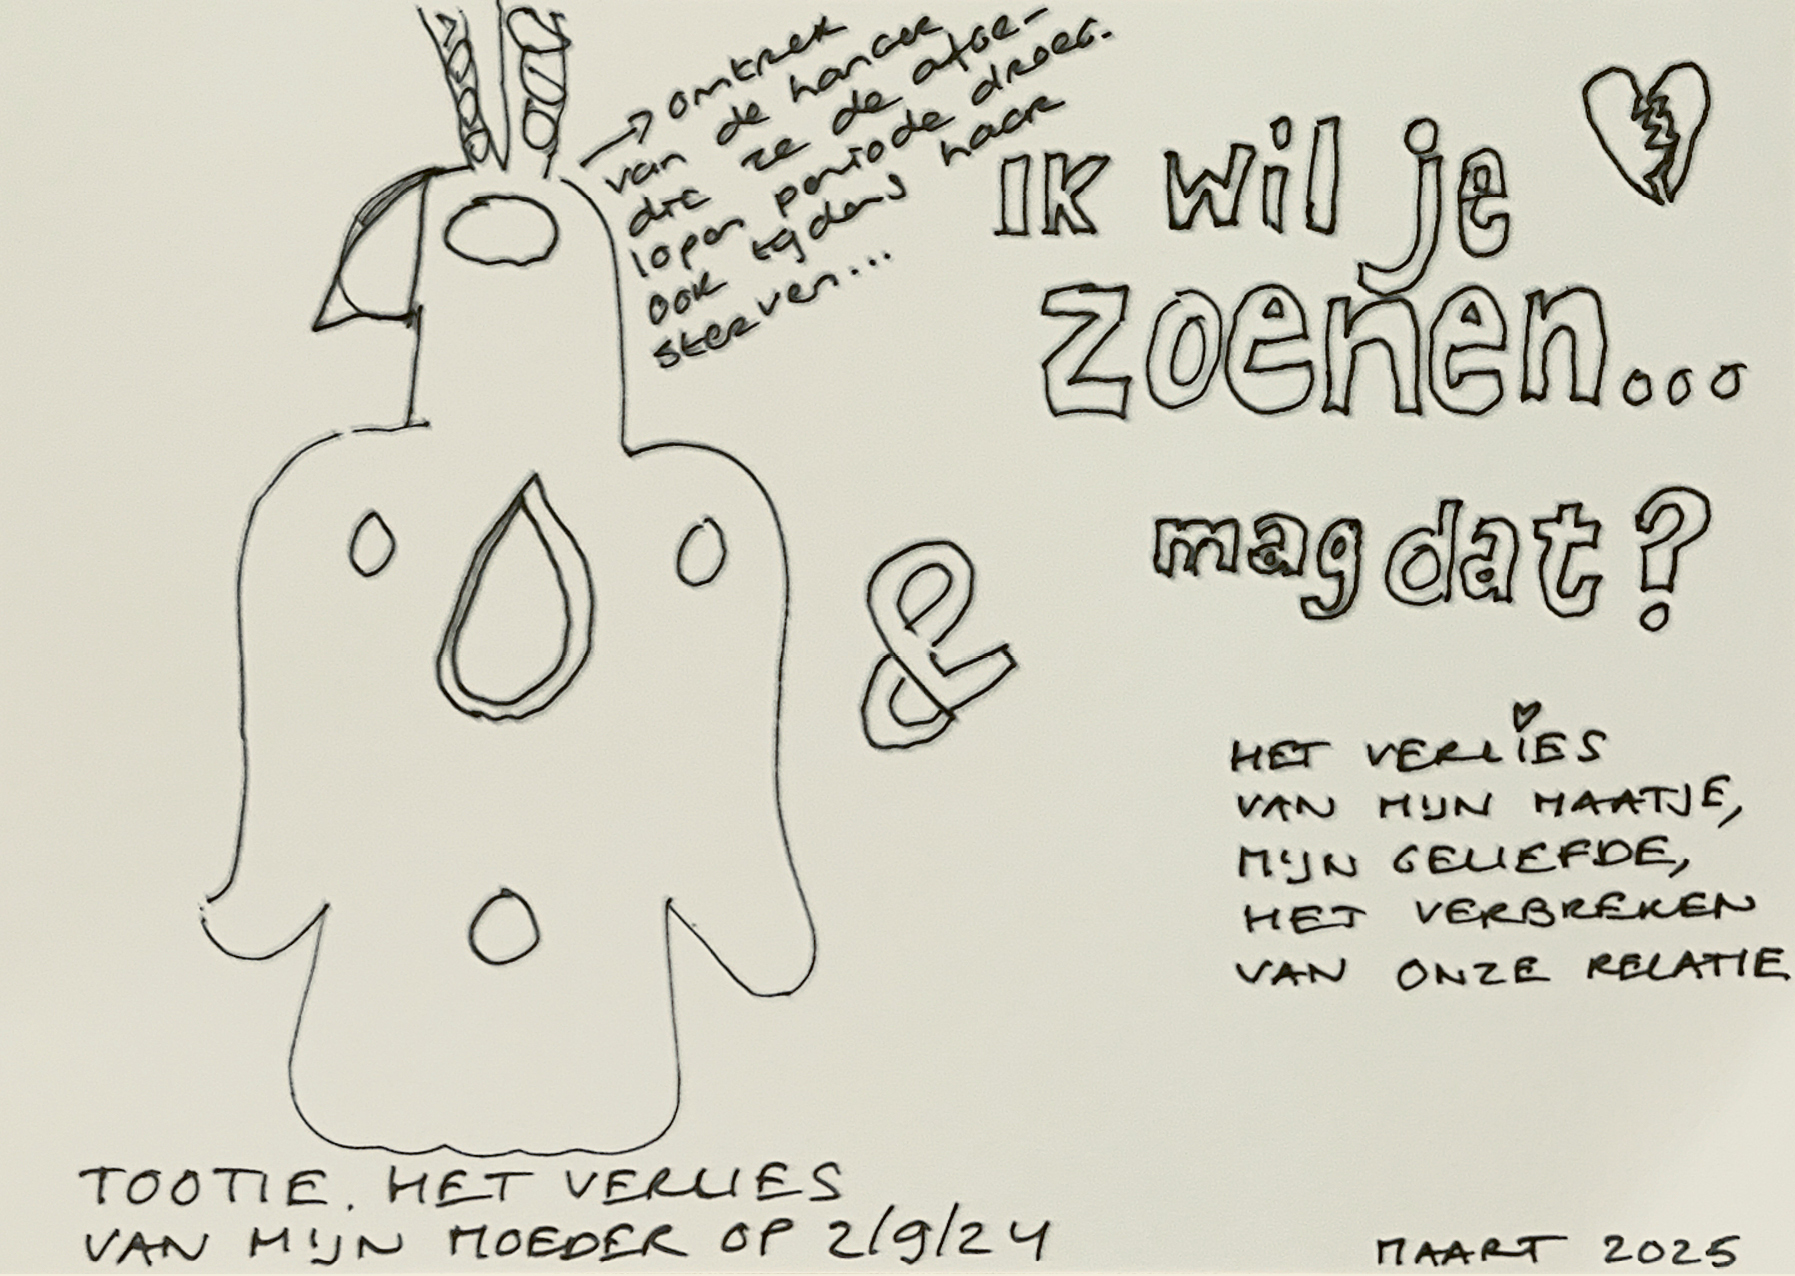 → omtrek
van de hanger
die ze de afge-
lopen periode droeg.
ook tijdens haar
sterven...
Ik wil je
zoenen...
mag dat?
&
HET VERLIES
VAN MIJN MAATJE,
MIJN GELIEFDE,
HET VERBREKEN
VAN ONZE RELATIE
TOOTIE. HET VERLIES
VAN MIJN MOEDER OP 2/9/24
MAART 2025